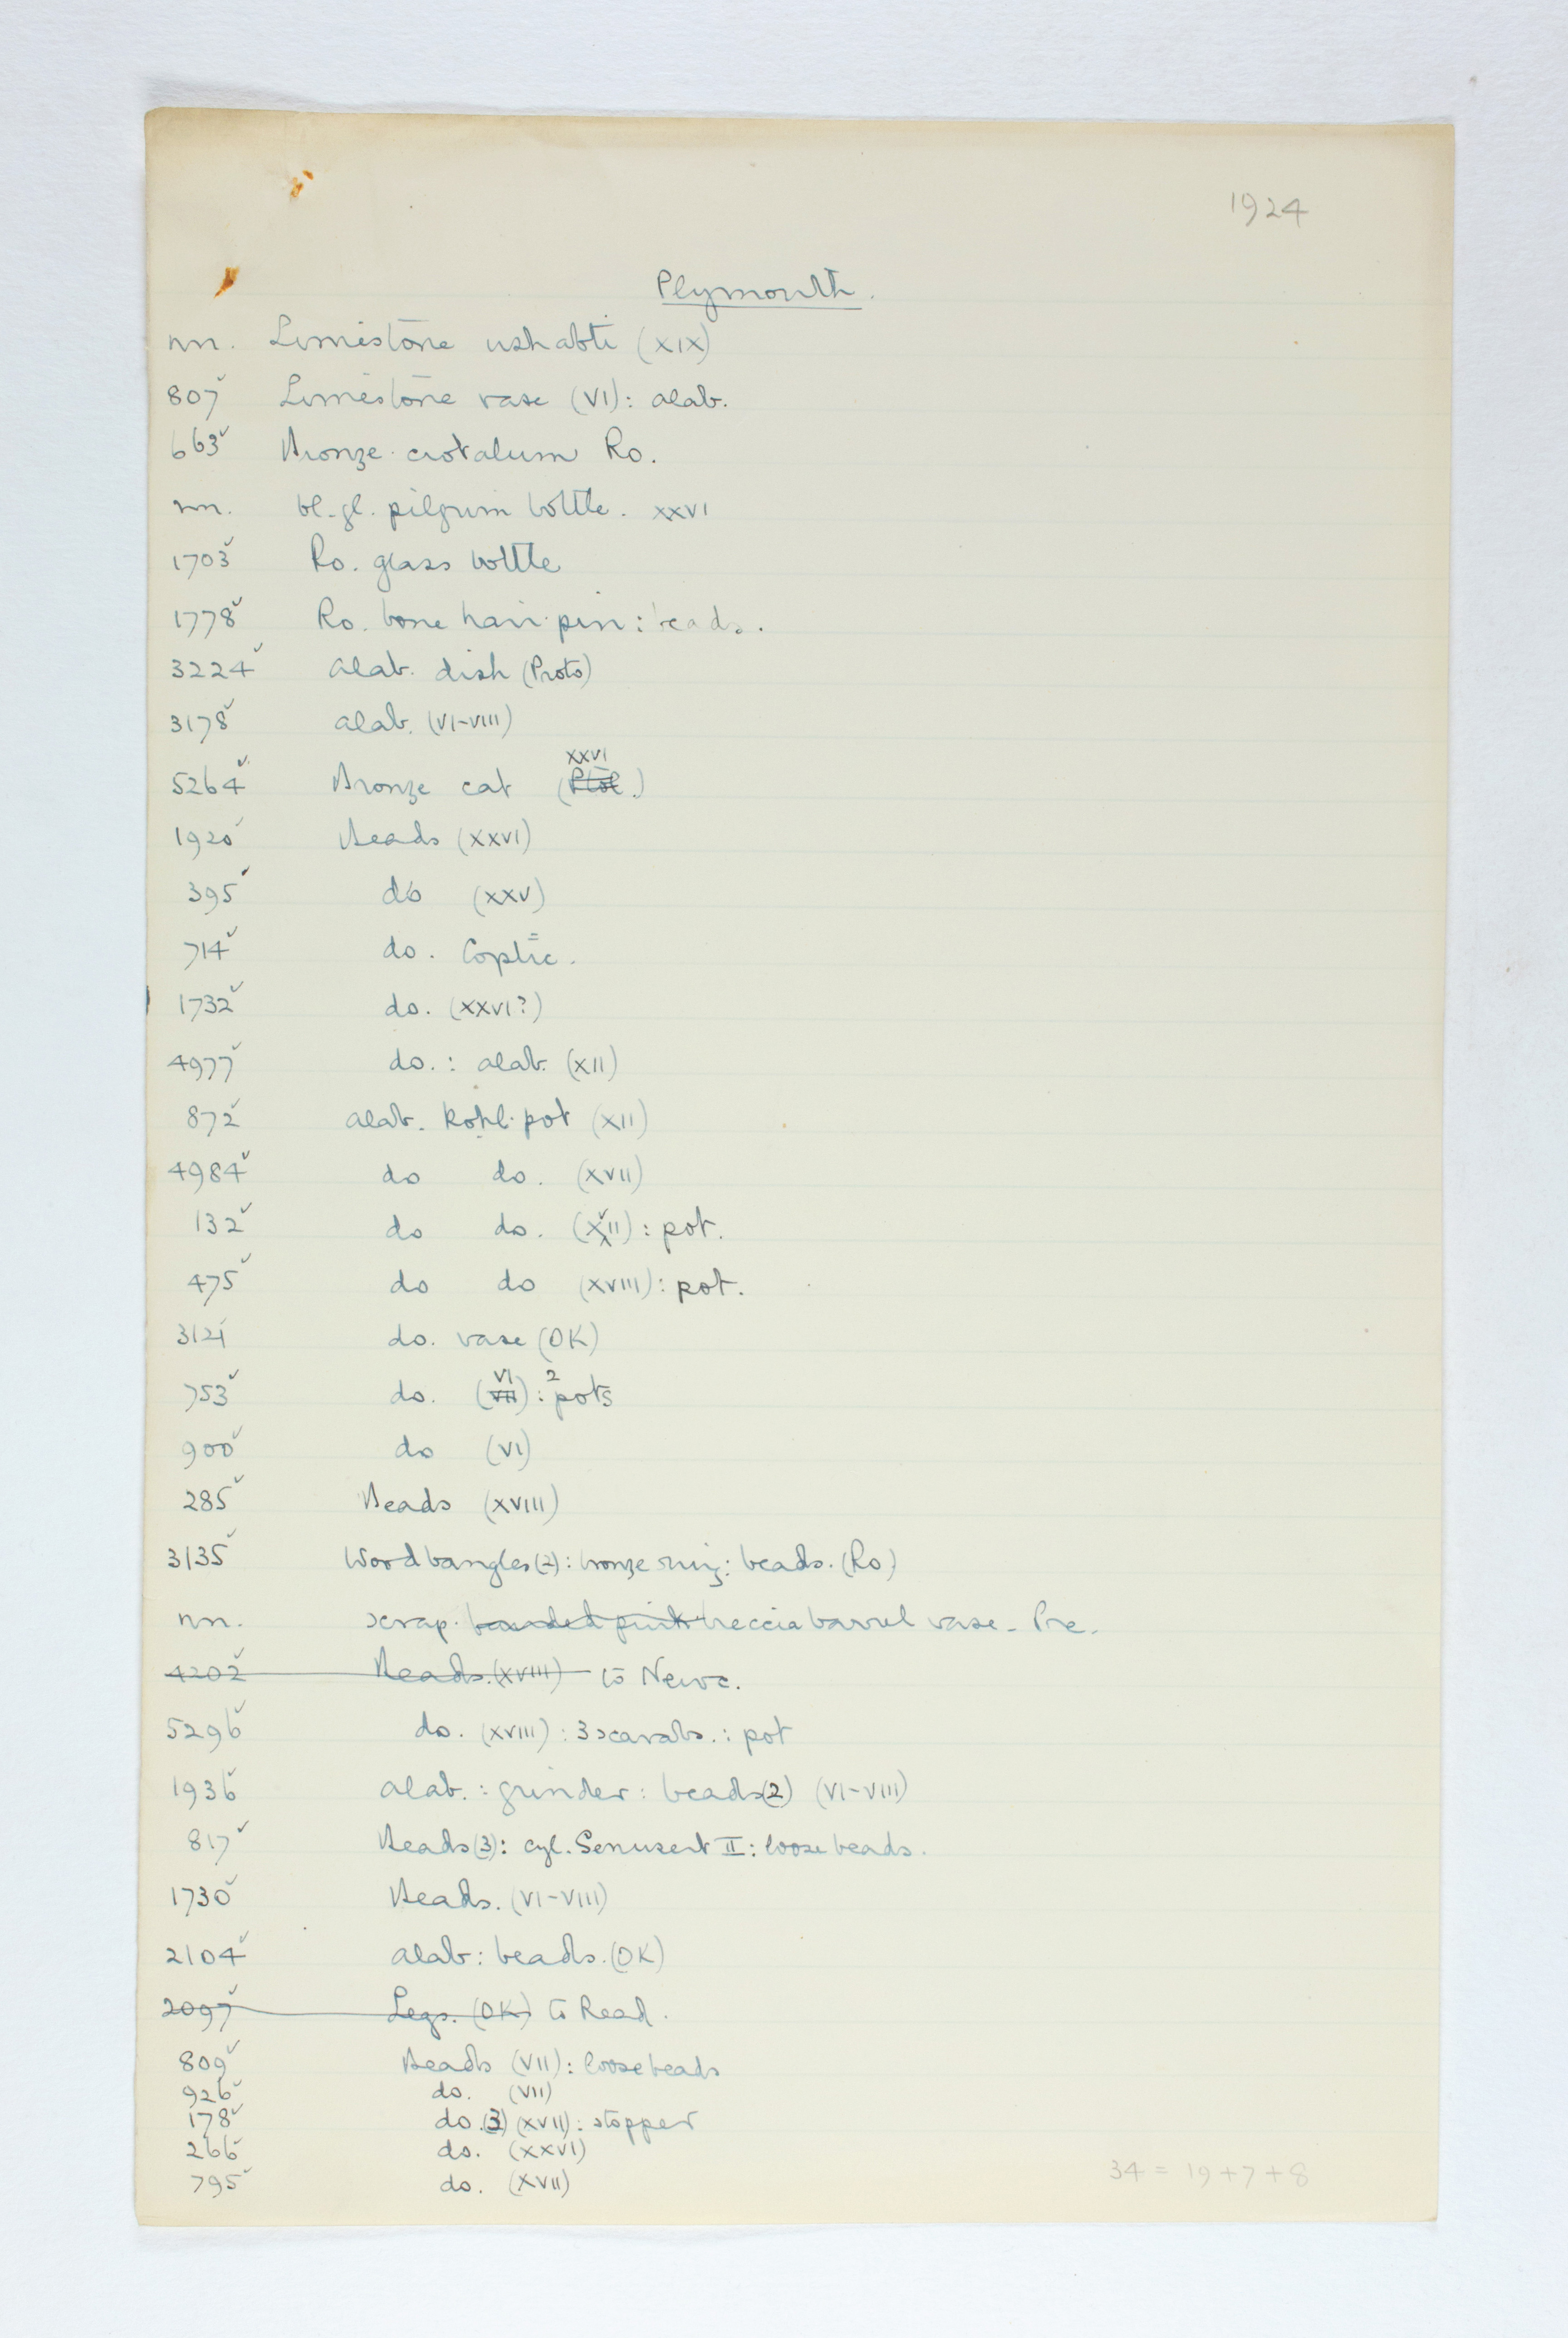 1924
Plymouth.
nn. Limestone ushabti (XIX)
807✓ Limestone vase (VI): alab.
663✓ Bronze crotalum Ro.
nn. bl. gl. pilgrim bottle. XXVI
1703✓ Ro. glass bottle
1778✓ Ro. bone hair-pin: beads.
3224✓ alab. dish (Proto)
3178✓ alab. (VI-VIII)
5264✓ Bronze cat (Ptol.) XXVI
1920✓ Beads (XXVI)
395✓ do (XXV)
714✓ do. Coptic.
1732✓ do. (XXVI?)
4977✓ do.: alab. (XII)
872✓ alab. kohl-pot (XII)
4984✓ do do. (XVII)
132✓ do do. (XVII): pot.
475✓ do do (XVIII): pot.
3121✓ do. vase (OK)
753✓ do. (VII) VI: 2 pots
900✓ do (VI)
285✓ Beads (XVIII)
3135✓ Wood bangles (2): bronze ring: beads. (Ro)
nn. scrap. banded pink breccia barrel vase - Pre.
4202✓ Beads. (XVIII) to Newc.
5296✓ do. (XVIII): 3 scarabs.: pot
1936✓ alab.: grinder: beads (2) (VI-VIII)
817✓ Beads (3): cyl. Senusert II: loose beads.
1730✓ Beads. (VI-VIII)
2104✓ alab: beads. (OK)
2097✓ Legs. (OK) to Read.
809✓ Beads (VII): loose beads
926✓ do. (VII)
178✓ do. (3) (XVII): stopper
266✓ do. (XXVI)
795✓ do. (XVII)
34 = 19 + 7 + 8